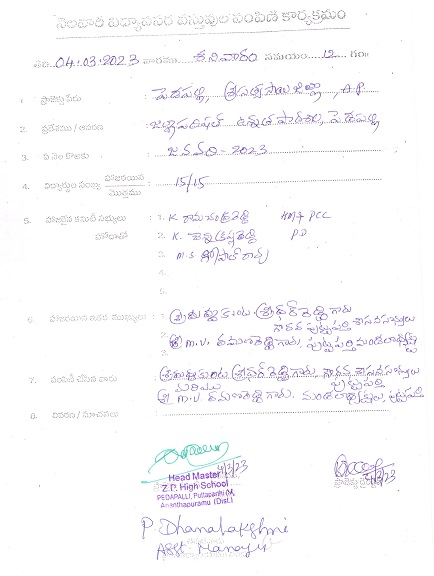 నెలవారీ విద్యావసర వస్తువుల పంపిణి కార్యక్రమం
తేది: 04.03.2023 వారము శనివారం సమయం: 12 గం||
1. ప్రాజెక్టు పేరు : పెడపల్లి, శ్రీ సత్యసాయి జిల్లా, A.P
2. ప్రదేశము / ఆవరణ : జిల్లాపరిషత్ ఉన్నత పాఠశాల, పెడపల్లి
3. ఏ నెల కొరకు : జనవరి - 2023
4. విద్యార్థుల సంఖ్య హాజరయిన / మొత్తము : 15/15
5. హాజరైన కమిటీ సభ్యులు : 1. K. రామచంద్రారెడ్డి HM & PCC
హోదాతో 2. K. చెన్నకృష్ణారెడ్డి P.D
3. M.S. గోపాల్ రావు
4.
5.
6. హాజరయిన ఇతర ముఖ్యులు : 1. శ్రీ దుద్దుకుంట శ్రీధర్ రెడ్డి గారు
గౌరవ పుట్టపర్తి శాసనసభ్యులు
2. శ్రీ M.V. రమణారెడ్డి గారు, పుట్టపర్తి మండలాధ్యక్షులు
7. పంపిణి చేసిన వారు : శ్రీ దుద్దుకుంట శ్రీధర్ రెడ్డి గారు, గౌరవ శాసనసభ్యులు
మరియు పుట్టపర్తి
శ్రీ M.V. రమణారెడ్డి గారు. మండలాధ్యక్షులు, పుట్టపర్తి
8. వివరణ / సూచనలు :
4/3/23
Head Master
Z.P. High School
PEDAPALLI, Puttaparthi (M),
Ananthapuramu (Dist.)
4/3/23
P. Dhanalakshmi
Asst Manager